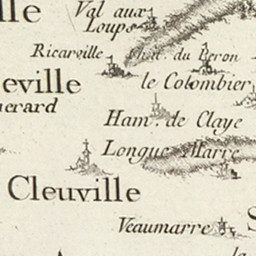 lle
Val aux
Loups
Ricarville
Chât. du Peron
eville
le Colombier
uerard
Ham. de Claye
Longue Marre
Cleuville
Veaumarre
S
le